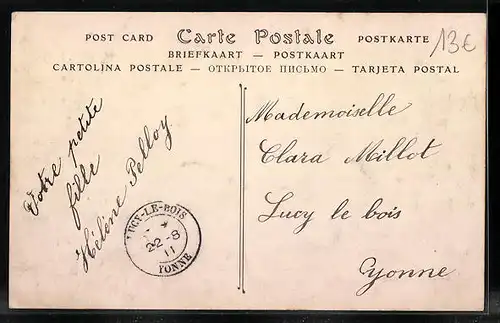 POST CARD Carte Postale POSTKARTE
BRIEFKAART — POSTKAART
CARTOLINA POSTALE — ОТКРЫТОЕ ПИСЬМО — TARJETA POSTAL
13€
Votre petite
fille
Hélène Pelloy
LUCY-LE-BOIS
22-8
11
YONNE
Mademoiselle
Clara Millot
Lucy le bois
Yonne